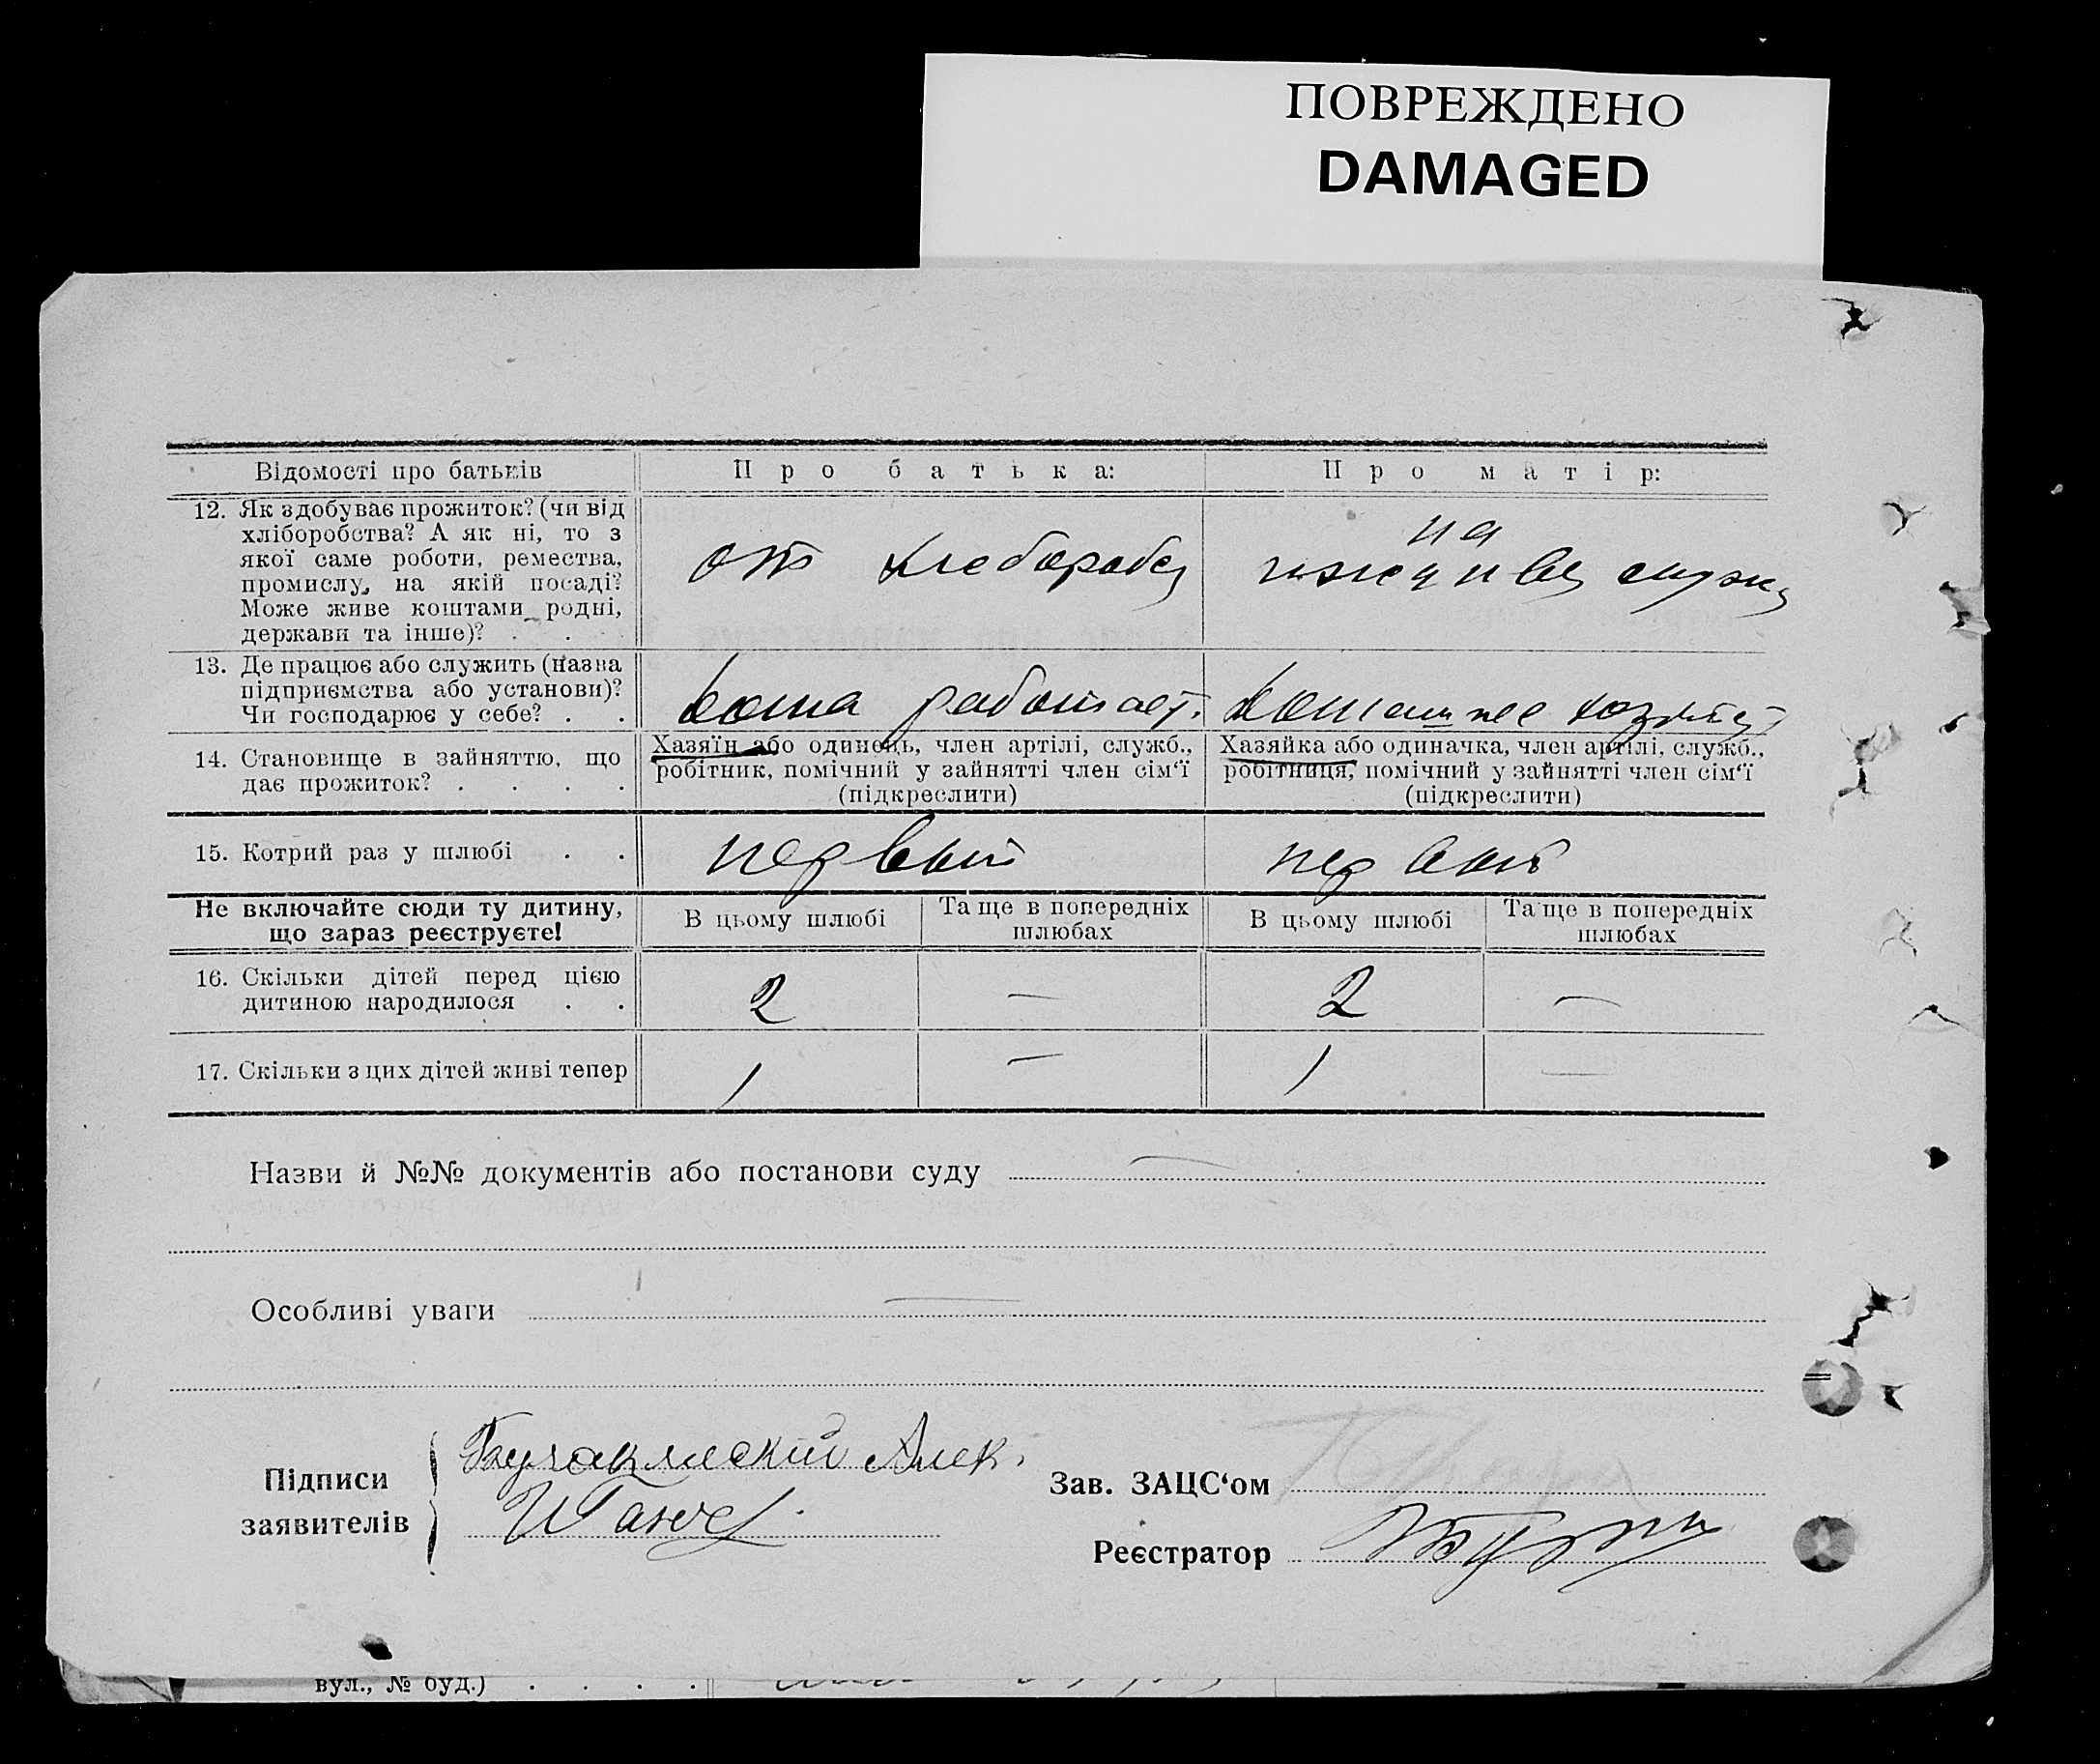 ПОВРЕЖДЕНО
DAMAGED
Відомості про батьків
Про батька:
Про матір:
12. Як здобуває прожиток? (чи від
хліборобства? А як ні, то з
якої саме роботи, ремества,
промислу, на якій посаді?
Може живе коштами родні,
держави та інше)? . .
от хлебороб
на
иждивен мужа
13. Де працює або служить (назва
підприємства або установи)?
Чи господарює у себе? . .
дома работает.
домашнее
14. Становище в зайняттю, що
дає прожиток? . . . .
Хазяїн або одинець, член артілі, служб.,
робітник, помічний у зайнятті член сім‘ї
(підкреслити)
Хазяйка або одиначка, член артілі, служб.,
робітниця, помічний у зайнятті член сім‘ї
(підкреслити)
15. Котрий раз у шлюбі . .
первый
первый
Не включайте сюди ту дитину,
що зараз реєструєте!
В цьому шлюбі
Та ще в попередніх
шлюбах
В цьому шлюбі
Та ще в попередніх
шлюбах
16. Скільки дітей перед цією
дитиною народилося . .
2
—
2
—
17. Скільки з цих дітей живі тепер
1
—
1
—
Назви й №№ документів або постанови суду —
Особливі уваги —
Підписи
заявителів
Алек.
Зав. ЗАЦС‘ом
Реєстратор
вул., № буд.) . . . .